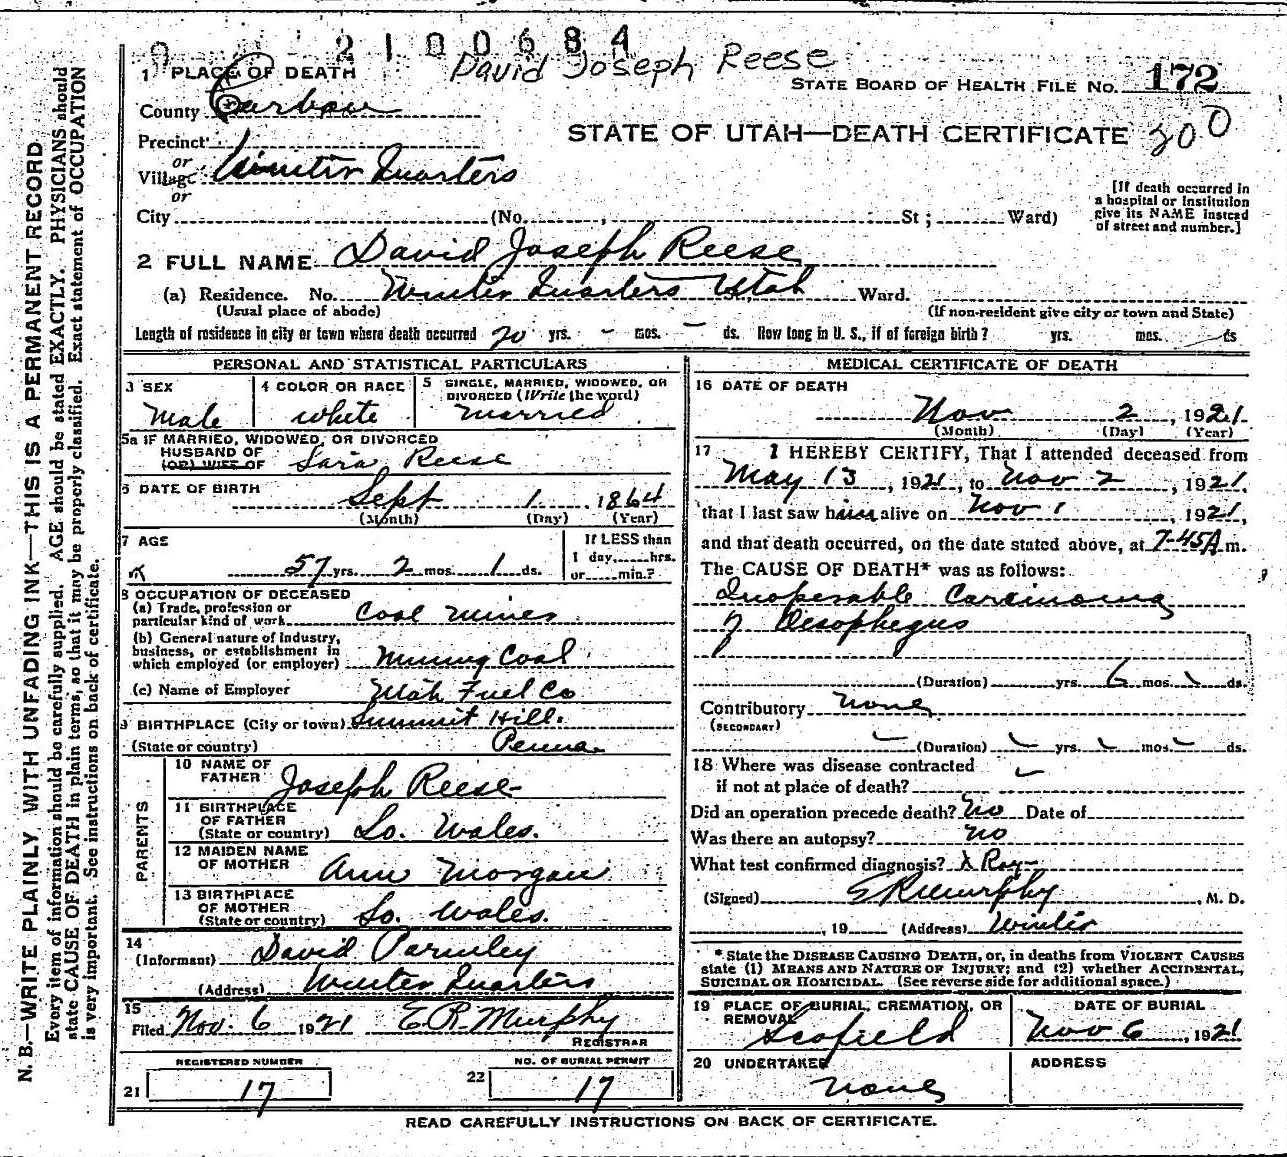 2100684
David Joseph Reese
1 PLACE OF DEATH
STATE BOARD OF HEALTH FILE No. 172
County Carbon
STATE OF UTAH—DEATH CERTIFICATE 200
Precinct
or
Village Winter Quarters
or
City (No. , St; Ward)
[If death occurred in
a hospital or institution
give its NAME instead
of street and number.]
2 FULL NAME David Joseph Reese
(a) Residence. No. Winter Quarters Utah Ward.
(Usual place of abode) (If non-resident give city or town and State)
Length of residence in city or town where death occurred 20 yrs. - mos. - ds. How long in U. S., if of foreign birth? yrs. mos. ds
PERSONAL AND STATISTICAL PARTICULARS
3 SEX 4 COLOR OR RACE 5 SINGLE, MARRIED, WIDOWED, OR
DIVORCED (Write the word)
Male white married
5a IF MARRIED, WIDOWED, OR DIVORCED
HUSBAND OF
(OR) WIFE OF Sara Reese
6 DATE OF BIRTH
Sept 1 1864
(Month) (Day) (Year)
7 AGE If LESS than
1 day, hrs.
57 yrs. 2 mos. 1 ds. or min.?
8 OCCUPATION OF DECEASED
(a) Trade, profession or
particular kind of work Coal Mines
(b) General nature of industry,
business, or establishment in
which employed (or employer) Mining Coal
(c) Name of Employer Utah Fuel Co
9 BIRTHPLACE (City or town) Summit Hill.
(State or country) Penna.
PARENTS
10 NAME OF
FATHER Joseph Reese
11 BIRTHPLACE
OF FATHER
(State or country) So. Wales.
12 MAIDEN NAME
OF MOTHER Ann Morgan
13 BIRTHPLACE
OF MOTHER
(State or country) So. Wales.
14
(Informant) David Parmley
(Address) Winter Quarters
15
Filed Nov. 6 1921 E.R. Murphy
REGISTRAR
REGISTERED NUMBER NO. OF BURIAL PERMIT
21 17 22 17
MEDICAL CERTIFICATE OF DEATH
16 DATE OF DEATH
Nov 2, 1921
(Month) (Day) (Year)
17 I HEREBY CERTIFY, That I attended deceased from
May 13, 1921, to Nov 2, 1921,
that I last saw him alive on Nov 1, 1921,
and that death occurred, on the date stated above, at 7-45A m.
The CAUSE OF DEATH* was as follows:
Inoperable Carcinoma
of Oesophegus
(Duration) yrs. 6 mos. ds.
Contributory None
(SECONDARY)
(Duration) yrs. mos. ds.
18 Where was disease contracted
if not at place of death?
Did an operation precede death? No Date of
Was there an autopsy? no
What test confirmed diagnosis? X Ray
(Signed) E R Murphy, M. D.
, 19 (Address) Winter
* State the DISEASE CAUSING DEATH, or, in deaths from VIOLENT CAUSES
state (1) MEANS AND NATURE OF INJURY; and (2) whether ACCIDENTAL,
SUICIDAL OR HOMICIDAL. (See reverse side for additional space.)
19 PLACE OF BURIAL, CREMATION, OR
REMOVAL DATE OF BURIAL
Scofield Nov 6, 1921
20 UNDERTAKER ADDRESS
None
READ CAREFULLY INSTRUCTIONS ON BACK OF CERTIFICATE.
N. B.—WRITE PLAINLY WITH UNFADING INK—THIS IS A PERMANENT RECORD
Every item of information should be carefully supplied. AGE should be stated EXACTLY. PHYSICIANS should
state CAUSE OF DEATH in plain terms, so that it may be properly classified. Exact statement of OCCUPATION
is very important. See instructions on back of certificate.